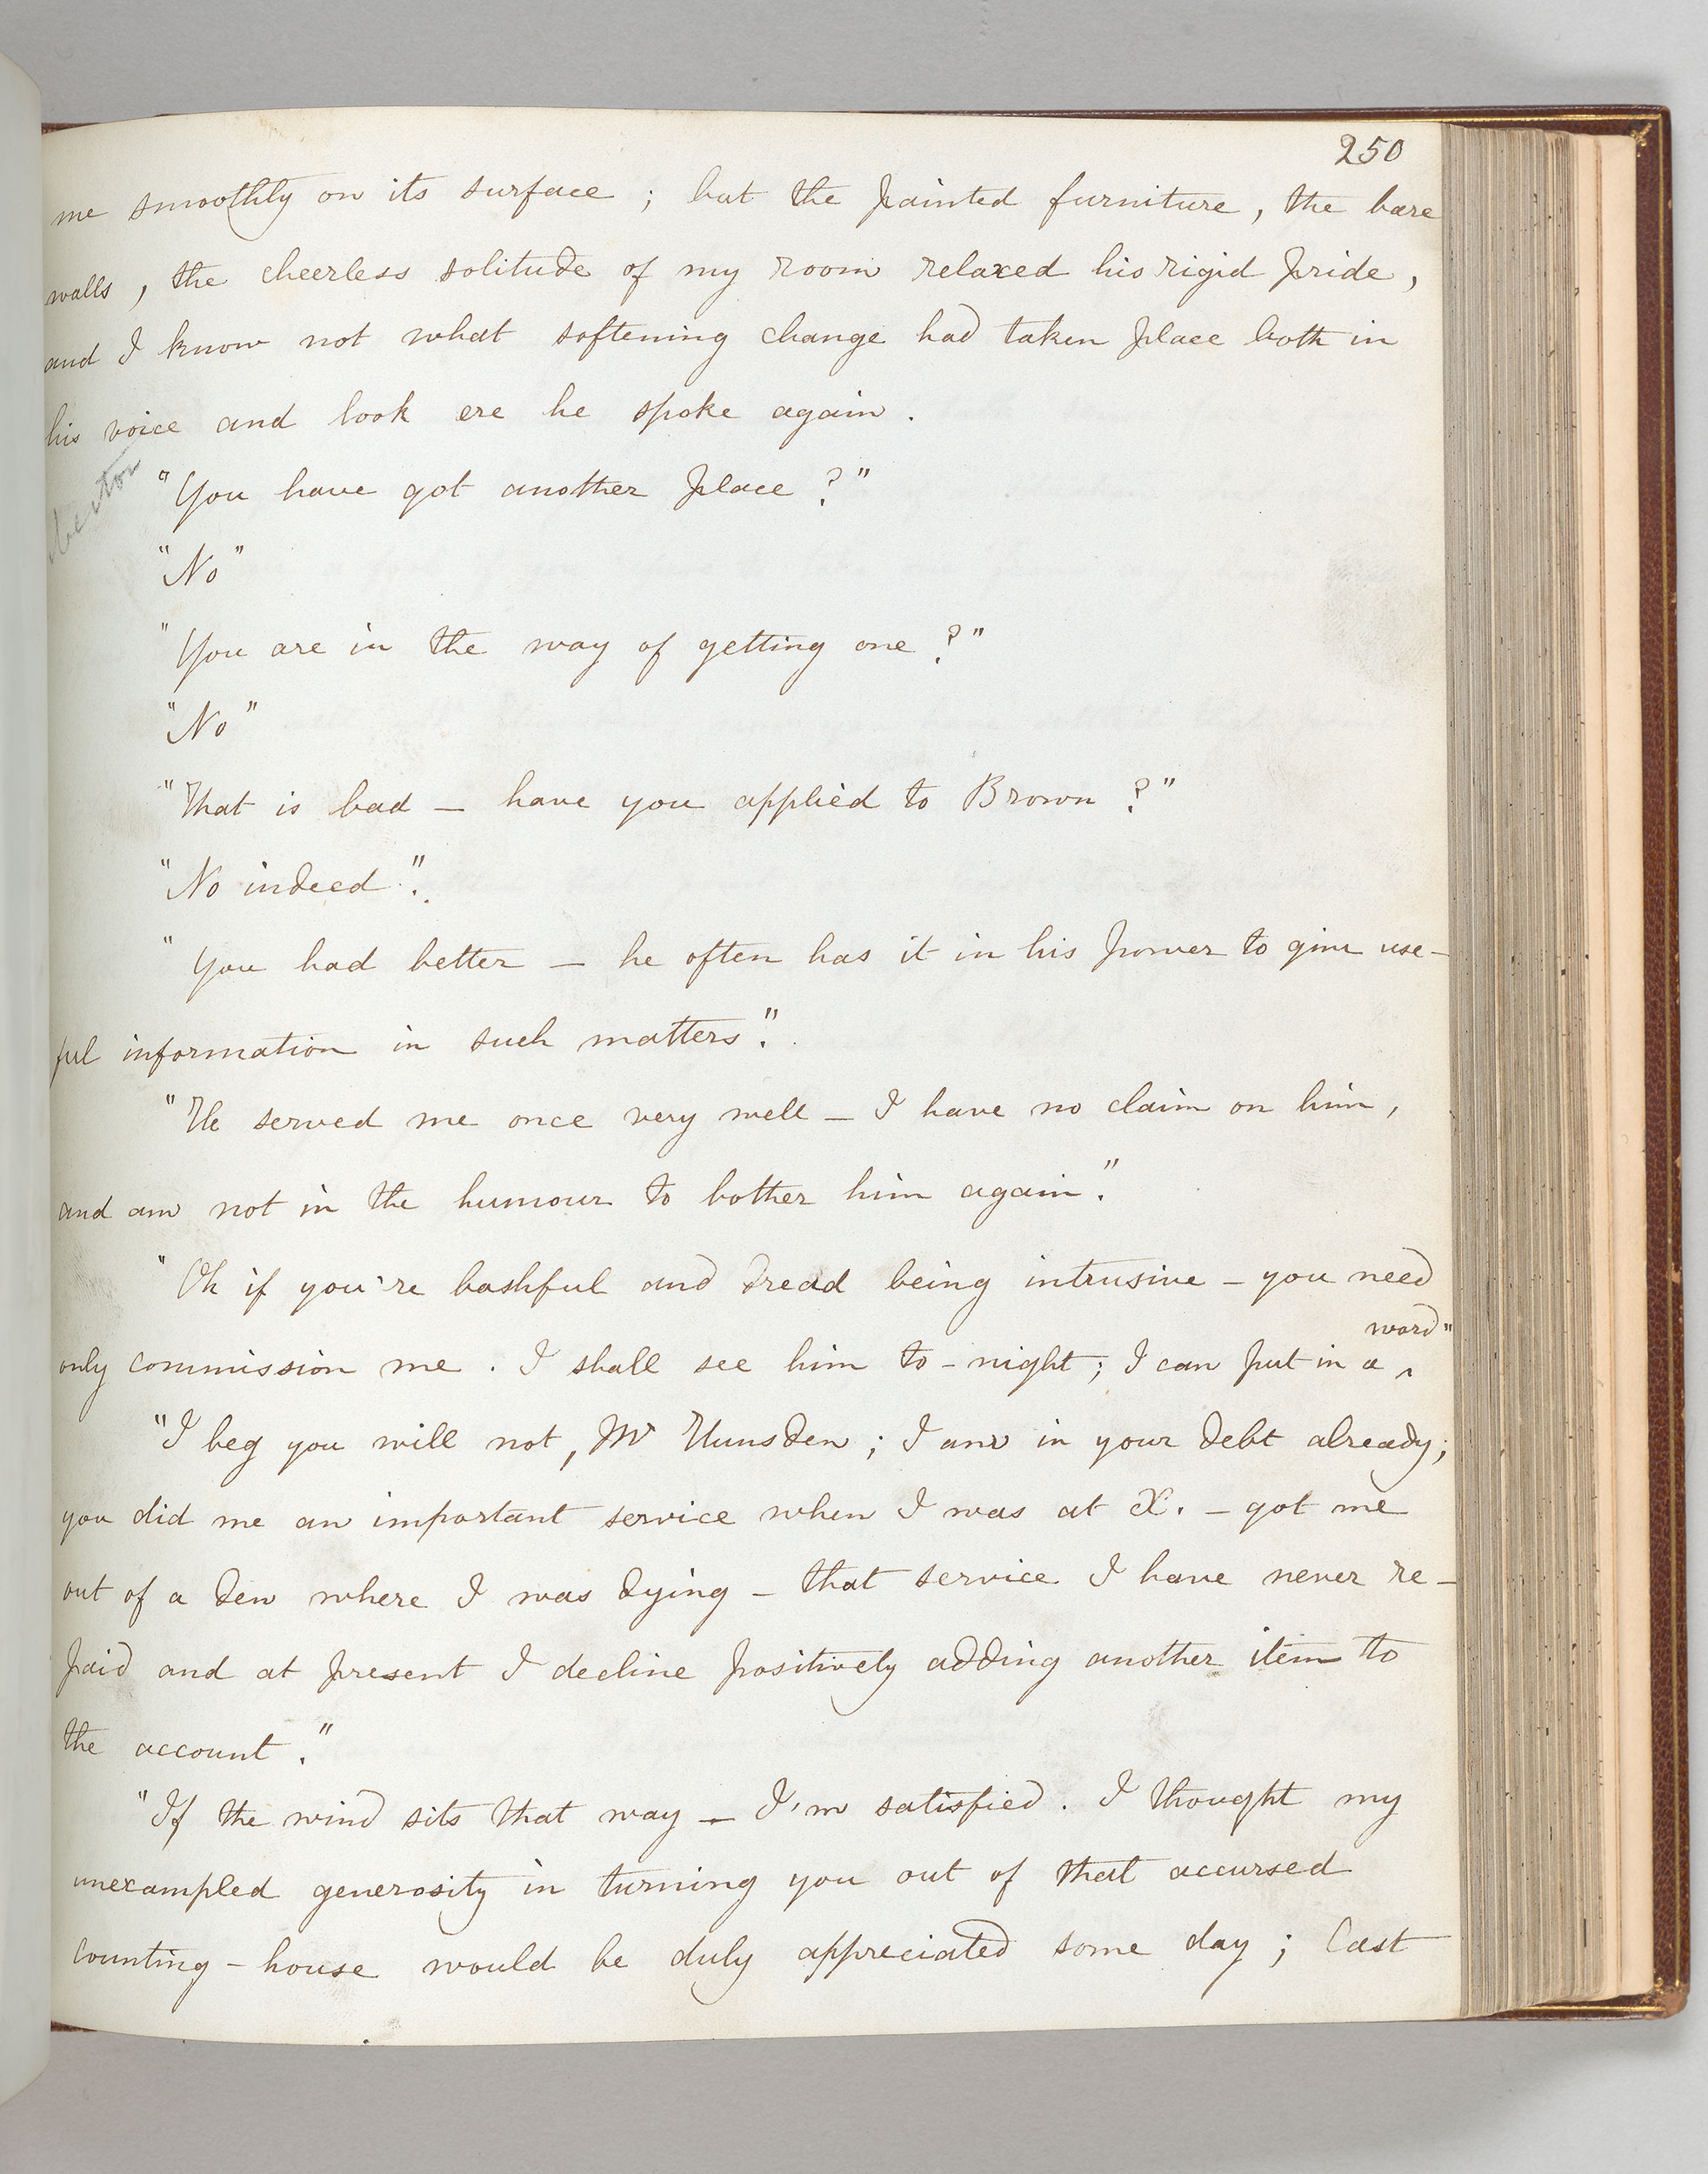 250
me smoothly on its surface ; but the painted furniture, the bare
walls, the cheerless solitude of my room relaxed his rigid pride,
and I know not what softening change had taken place both in
his voice and look ere he spoke again.
"You have got another place ?"
"No"
"You are in the way of getting one ?"
"No"
"That is bad — have you applied to Brown ?"
"No indeed."
"You had better — he often has it in his power to give use-
ful information in such matters."
"He served me once very well — I have no claim on him,
and am not in the humour to bother him again."
"Oh if you're bashful and dread being intrusive — you need
word"
only commission me. I shall see him to-night; I can put in a ^
"I beg you will not, Mr Hunsden; I am in your debt already;
you did me an important service when I was at X. — got me
out of a den where I was dying — that service I have never re-
paid and at present I decline positively adding another item to
the account."
"If the wind sits that way — I'm satisfied. I thought my
unexampled generosity in turning you out of that accursed
counting-house would be duly appreciated some day; Cast